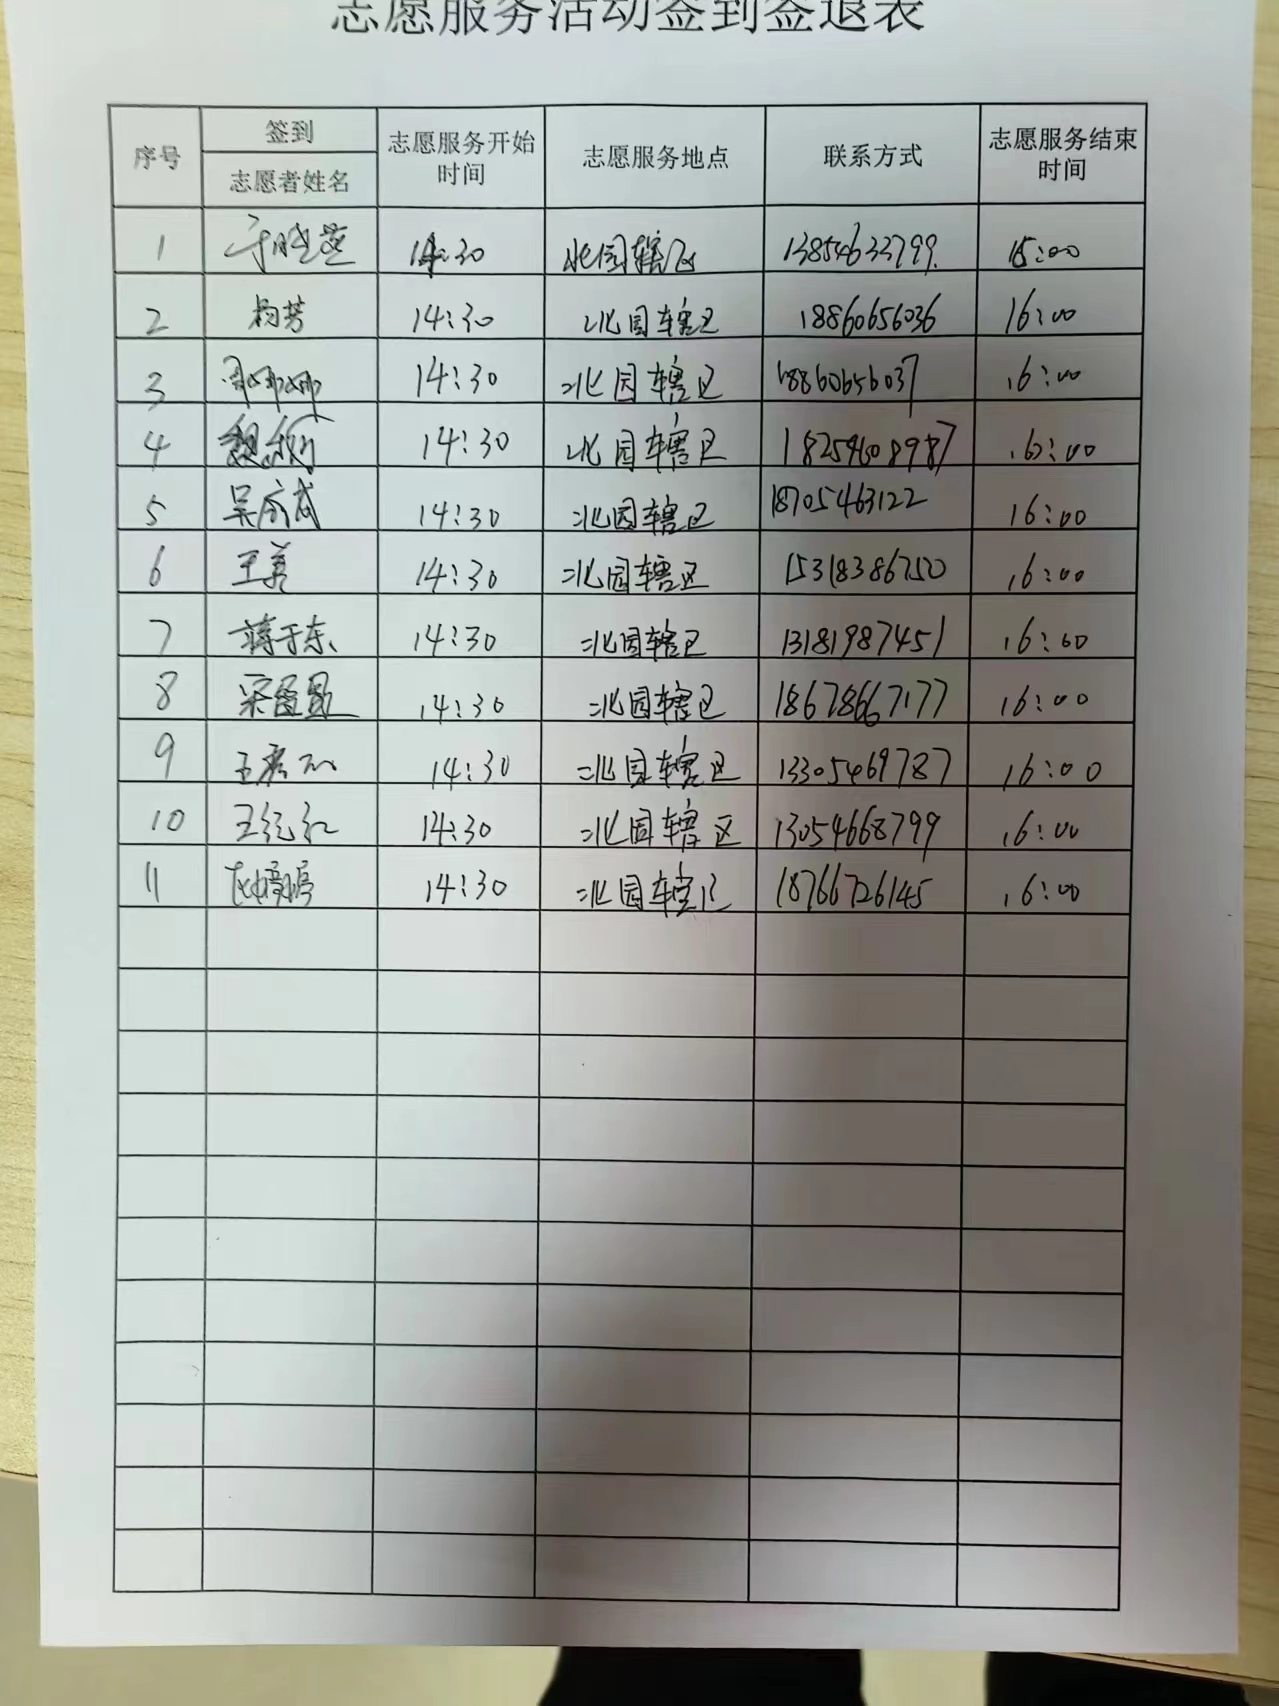 志愿服务活动签到签退表
序号 签到 志愿服务开始时间 志愿服务地点 联系方式 志愿服务结束时间
志愿者姓名
1 14:30 北园辖区 13854633799 15:00
2 杨芳 14:30 北园辖区 18860656036 16:00
3 周娜娜 14:30 北园辖区 18860656037 16:00
4 魏 14:30 北园辖区 18254608987 16:00
5 吴 14:30 北园辖区 18705463122 16:00
6 王美 14:30 北园辖区 15318386750 16:00
7 蒋于东 14:30 北园辖区 13181987451 16:00
8 梁盈盈 14:30 北园辖区 18678667177 16:00
9 王 14:30 北园辖区 13305469787 16:00
10 王纪红 14:30 北园辖区 13054668799 16:00
11 14:30 北园辖区 18766726145 16:00